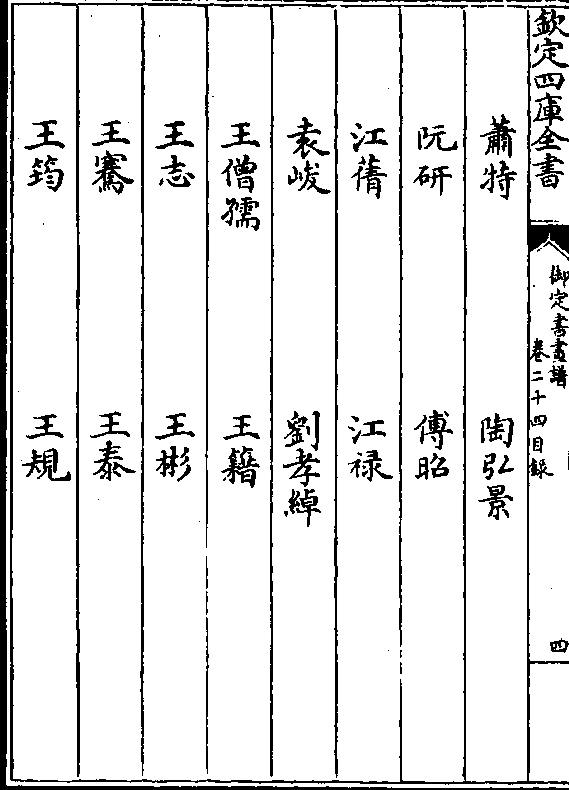 欽定四庫全書
御定書畫譜
卷二十四目録
四
蕭特 陶弘景
阮研 傅昭
江蒨 江禄
袁峻 劉孝綽
王僧孺 王籍
王志 王彬
王騫 王泰
王筠 王規